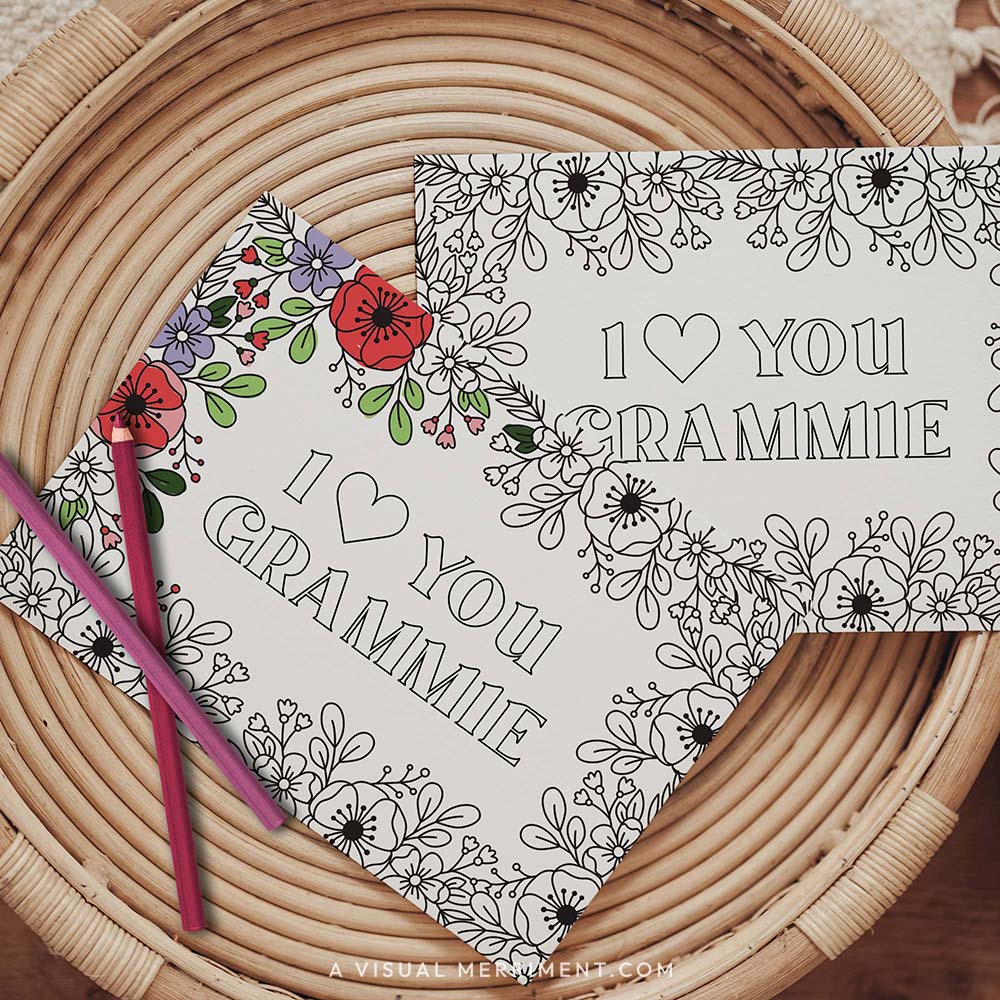 I ♡ YOU
GRAMMIE
I ♡ YOU
GRAMMIE
A VISUAL MERRIMENT.COM